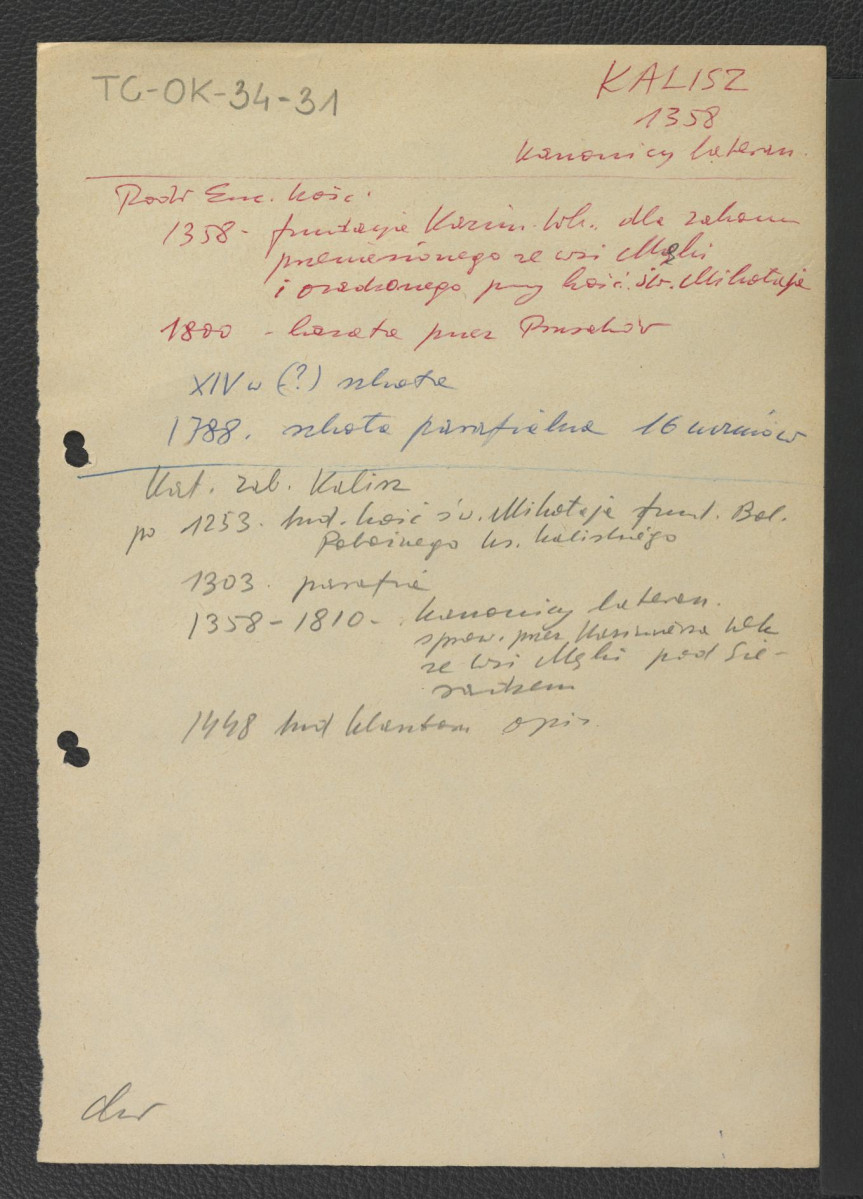 TC-OK-34-31
KALISZ
1358
Kanonicy lateran.
Podr Enc. Kość.
1358 - fundacja Kazim. Wk. dla zakonu
przeniesionego ze wsi Męki
i osadzonego przy kość. św. Mikołaja
1800 - kasata przez Prusaków
XIV w (?) szkoła
1788. szkoła parafialna 16 uczniów
Kat. zab. Kalisz
po 1253. bud. kość św. Mikołaja fund. Bol.
Pobożnego ks. kaliskiego
1303. parafia
1358-1810- kanonicy lateran.
sprow. przez Kazimierza Wk
ze wsi Męki pod Sie-
radzem
1448 bud klasztoru opis.